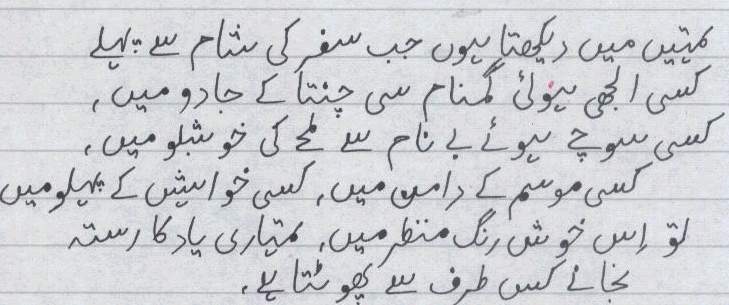 تمہیں میں دیکھتا ہوں جب سفر کی شام سے پہلے
کسی الجھی ہوئی گمنام سی چنتا کے جادو میں،
کسی سوچے ہوئے بے نام سے لمحے کی خوشبو میں،
کسی موسم کے دامن میں، کسی خواہش کے پہلو میں
تو اِس خوش رنگ منظر میں، تمہاری یاد کا رستہ
نجانے کس طرف سے پھوٹتا ہے،